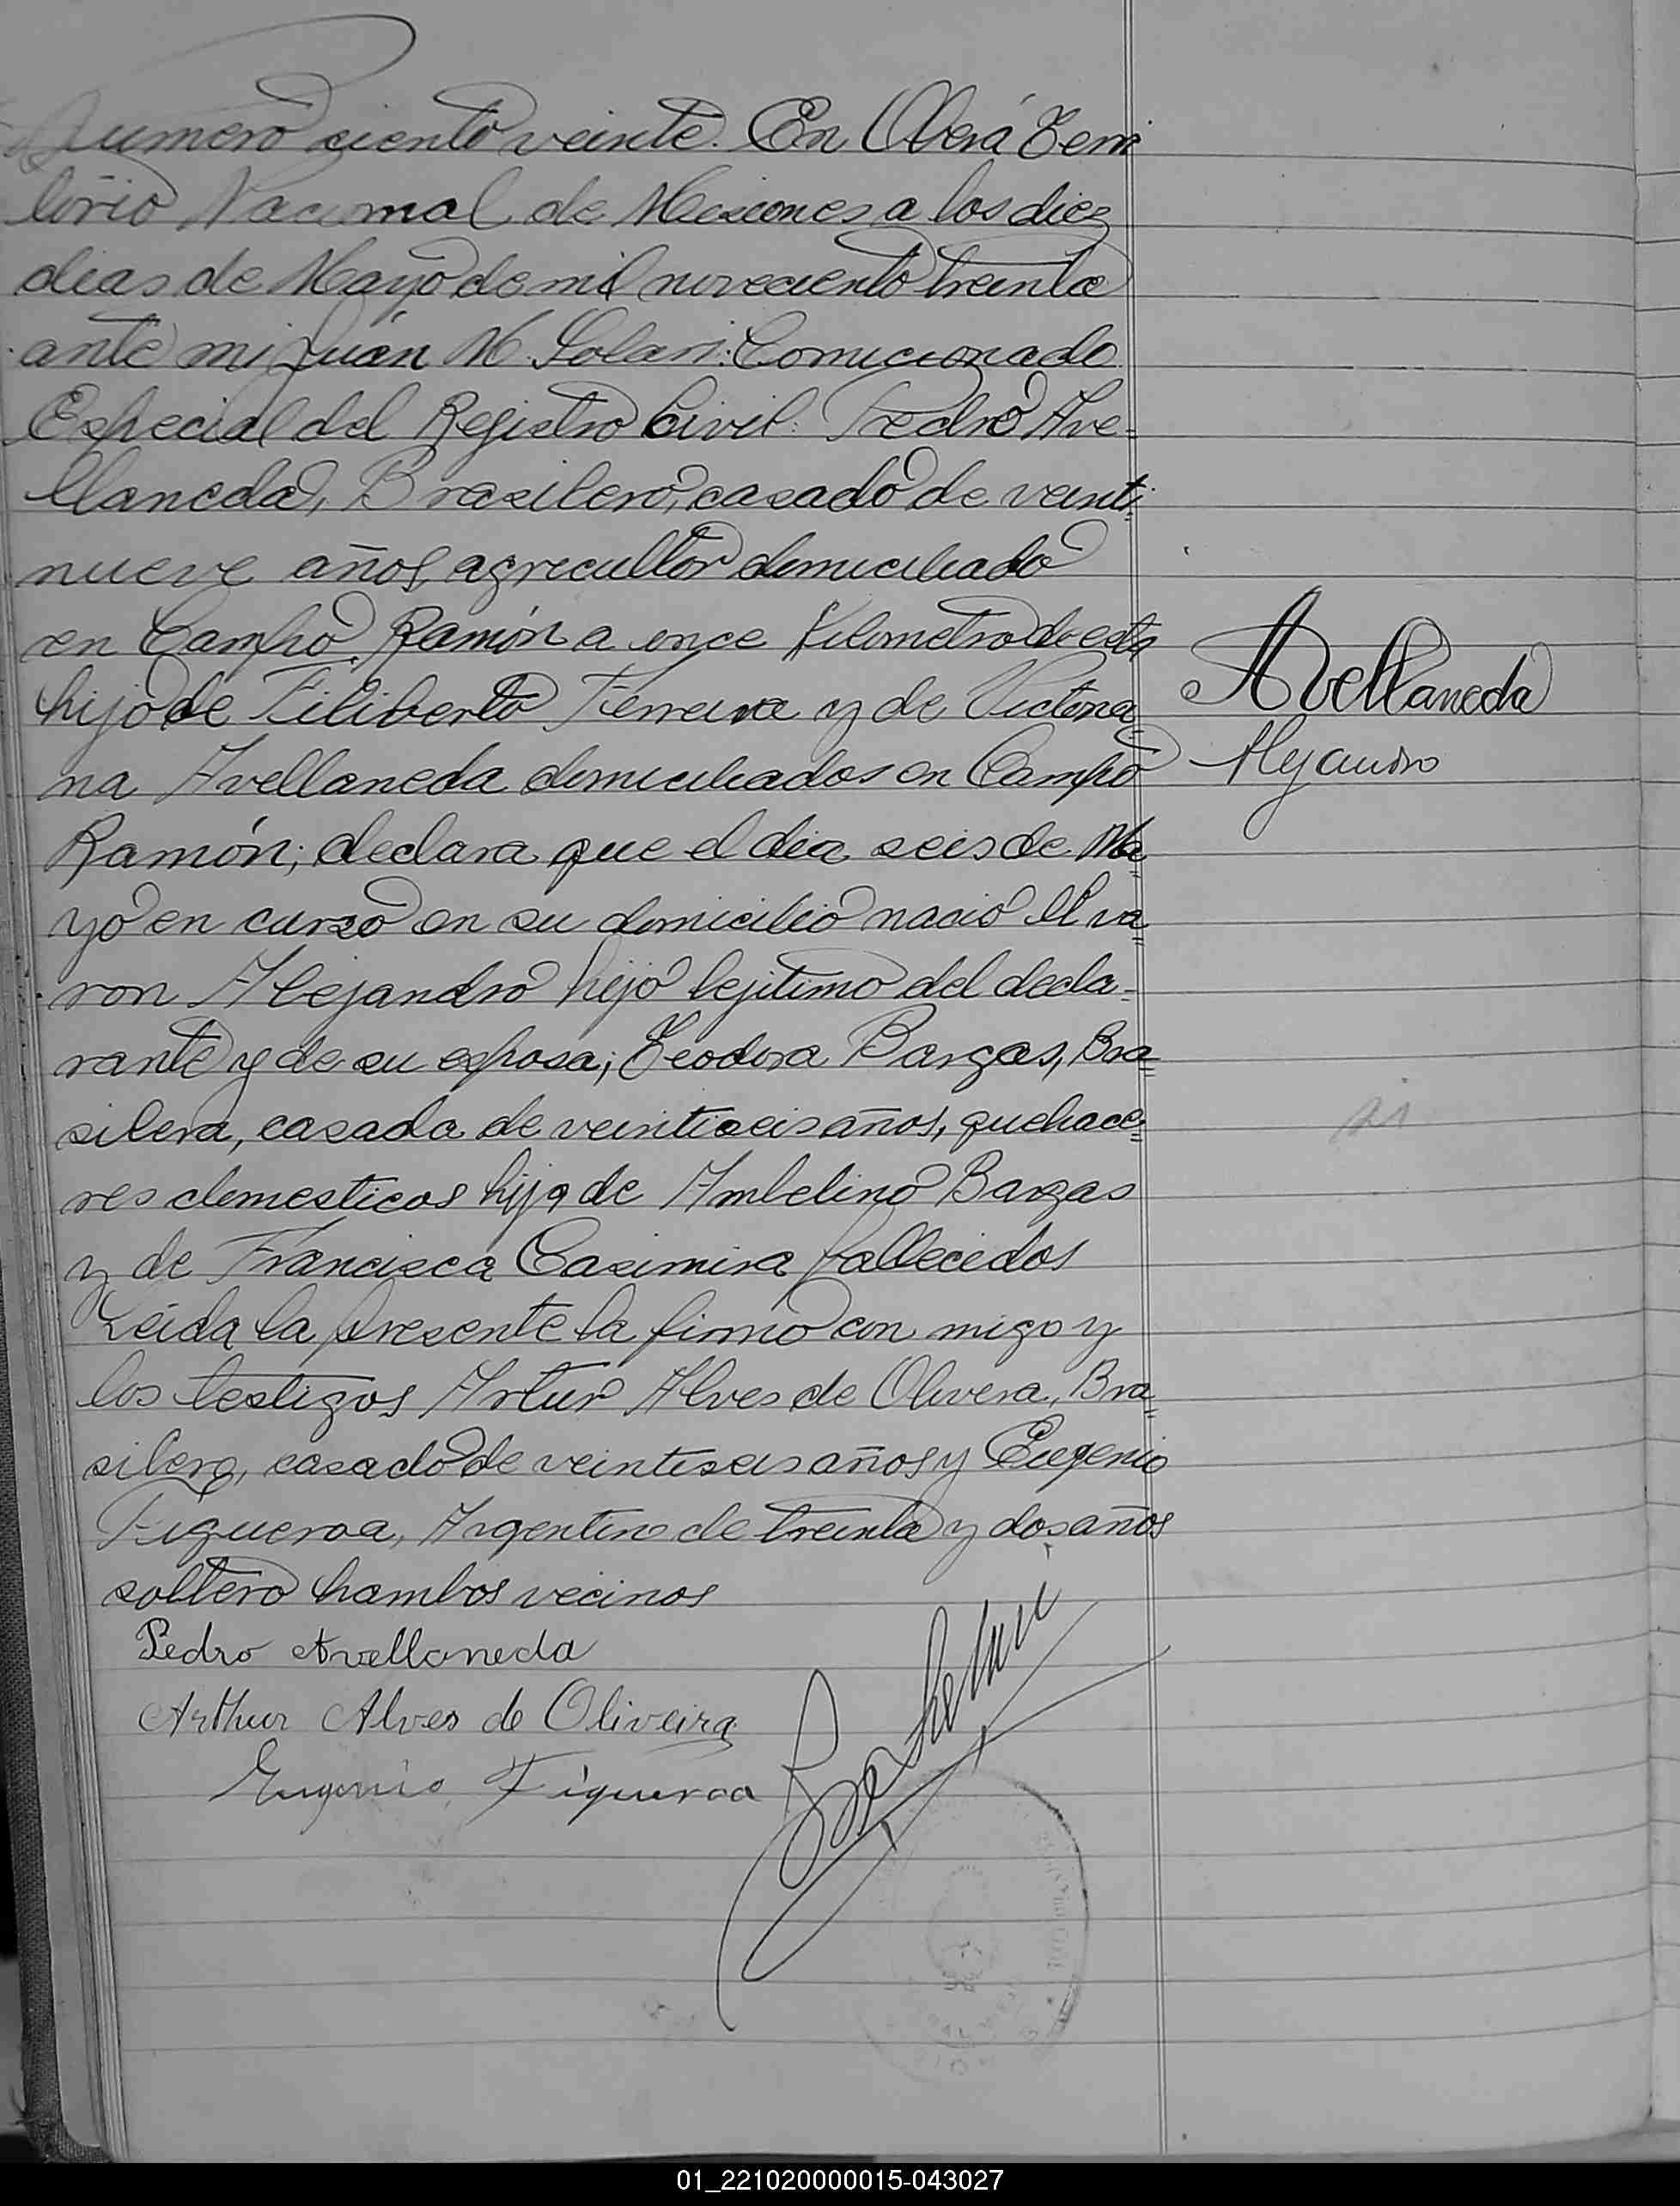 Numero ciento veinte. En Oberá Terri
torio Nacional de Misiones a los diez
dias de Mayo de mil noveciento treinta
ante mi Juán M. Solari: Comicionado
Especial del Registro Civil: Pedro Ave=
llaneda, Brasilero, casado de veinti=
nueve años, agricultor domiciliado
en Campo Ramón a once Kilometro de esta
hijo de Filiberto Ferreira y de Victoria
na Avellaneda domiciliados en Campo
Ramón; declara que el dia seis de Ma=
yo en curso en su domicilio nació el va=
ron Alejandro hijo lejitimo del decla-
rante y de su esposa; Teodora Bargas, Bra=
silera, casada de veintiseis años, quehace=
res domesticos hija de Ambelino Bargas
y de Francisca Casimira fallecidos
Leida la presente la firmó con migo y
los testigos Artur Alves de Olivera, Bra=
silero, casado de veintiseis años y Eugenio
Figueroa, Argentino de treinta y dos años
soltero hambos vecinos
Pedro Avellaneda
Arthur Alves de Oliveira
Eugenio Figueroa
Avellaneda
Alejandro
01_221020000015-043027